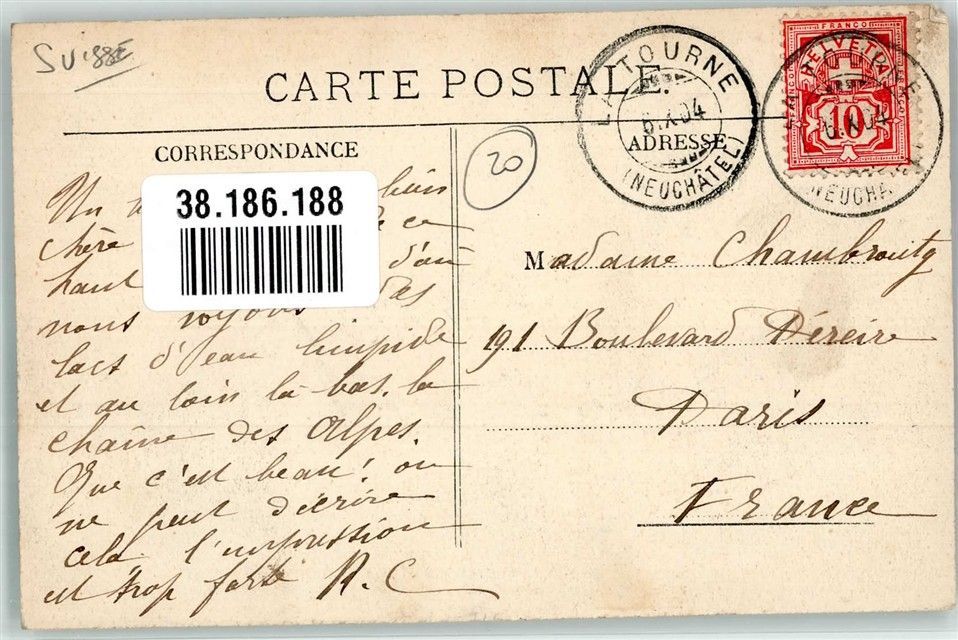 Suisse
CARTE POSTALE.
LA TOURNE
6.X.04
(NEUCHÂTEL)
FRANCO
HELVETIA
10
6.X.04
(NEUCHÂ
CORRESPONDANCE
ADRESSE
20
38.186.188
Un bien
chère ce
haut d'où
nous voyons des
lacs d'eau limpide
et au loin là bas, la
chaîne des Alpes.
Que c'est beau! on
ne peut décrire
cela, l'impression
est trop forte A. C
Madame Chambroutg
191 Boulevard Péreire
Paris
France